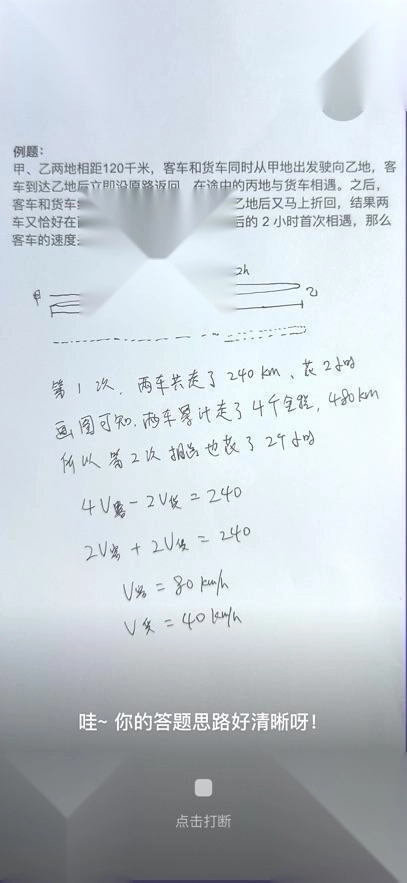 例题：
甲、乙两地相距120千米，客车和货车同时从甲地出发驶向乙地，客
车到达乙地后立即沿原路返回，在途中的丙地与货车相遇。之后，
客车和货车 乙地后又马上折回，结果两
车又恰好在 后的 2 小时首次相遇，那么
客车的速度
2h
甲 乙
第1次，两车共走了240km、花2小时
画图可知，两车累计走了4个全程，480km
所以第2次相遇也花了2个小时
4V客 - 2V货 = 240
2V客 + 2V货 = 240
V客 = 80 km/h
V货 = 40 km/h
哇~ 你的答题思路好清晰呀！
点击打断